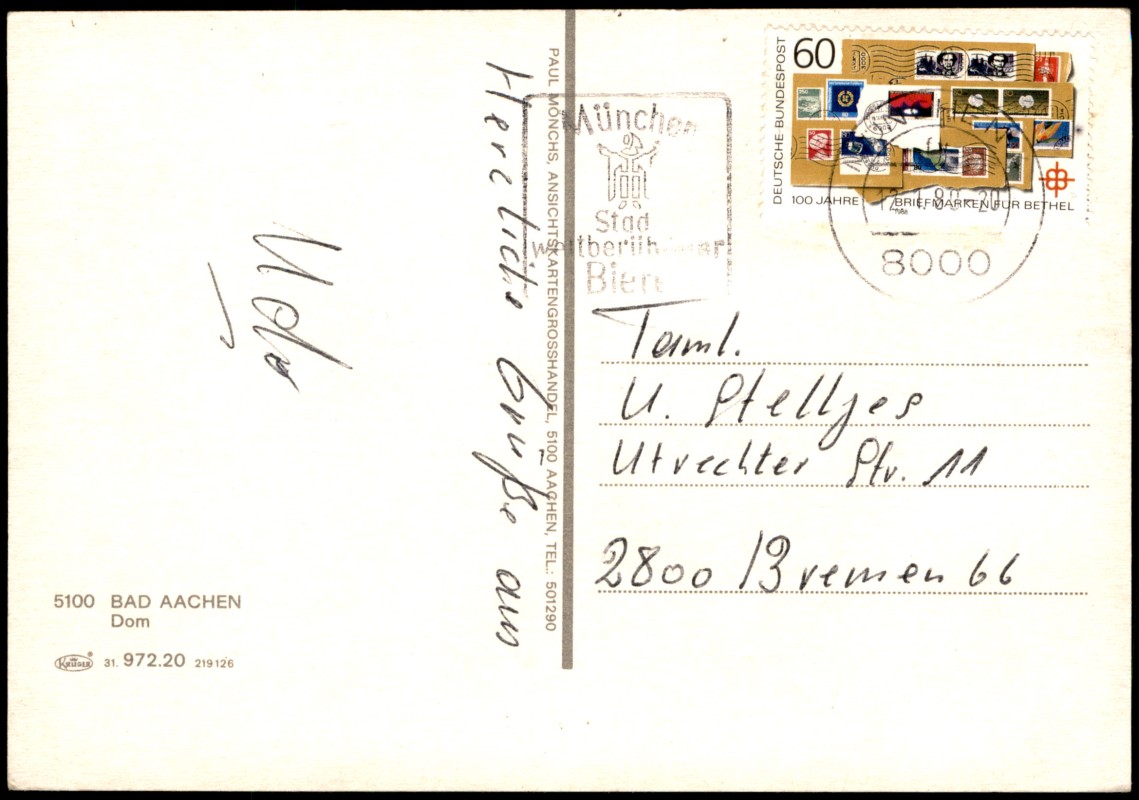 Herzliche Grüße aus
Udo
5100 BAD AACHEN
Dom
KRÜGER ® 31. 972.20 219126
PAUL MÖNCHS, ANSICHTSKARTENGROSSHANDEL, 5100 AACHEN, TEL.: 501290
München
Stad
weltberühmter
Biere
60
DEUTSCHE BUNDESPOST
100 JAHRE BRIEFMARKEN FÜR BETHEL
8000
Faml.
U. Stelljes
Utrechter Str. 11
2800 Bremen 66